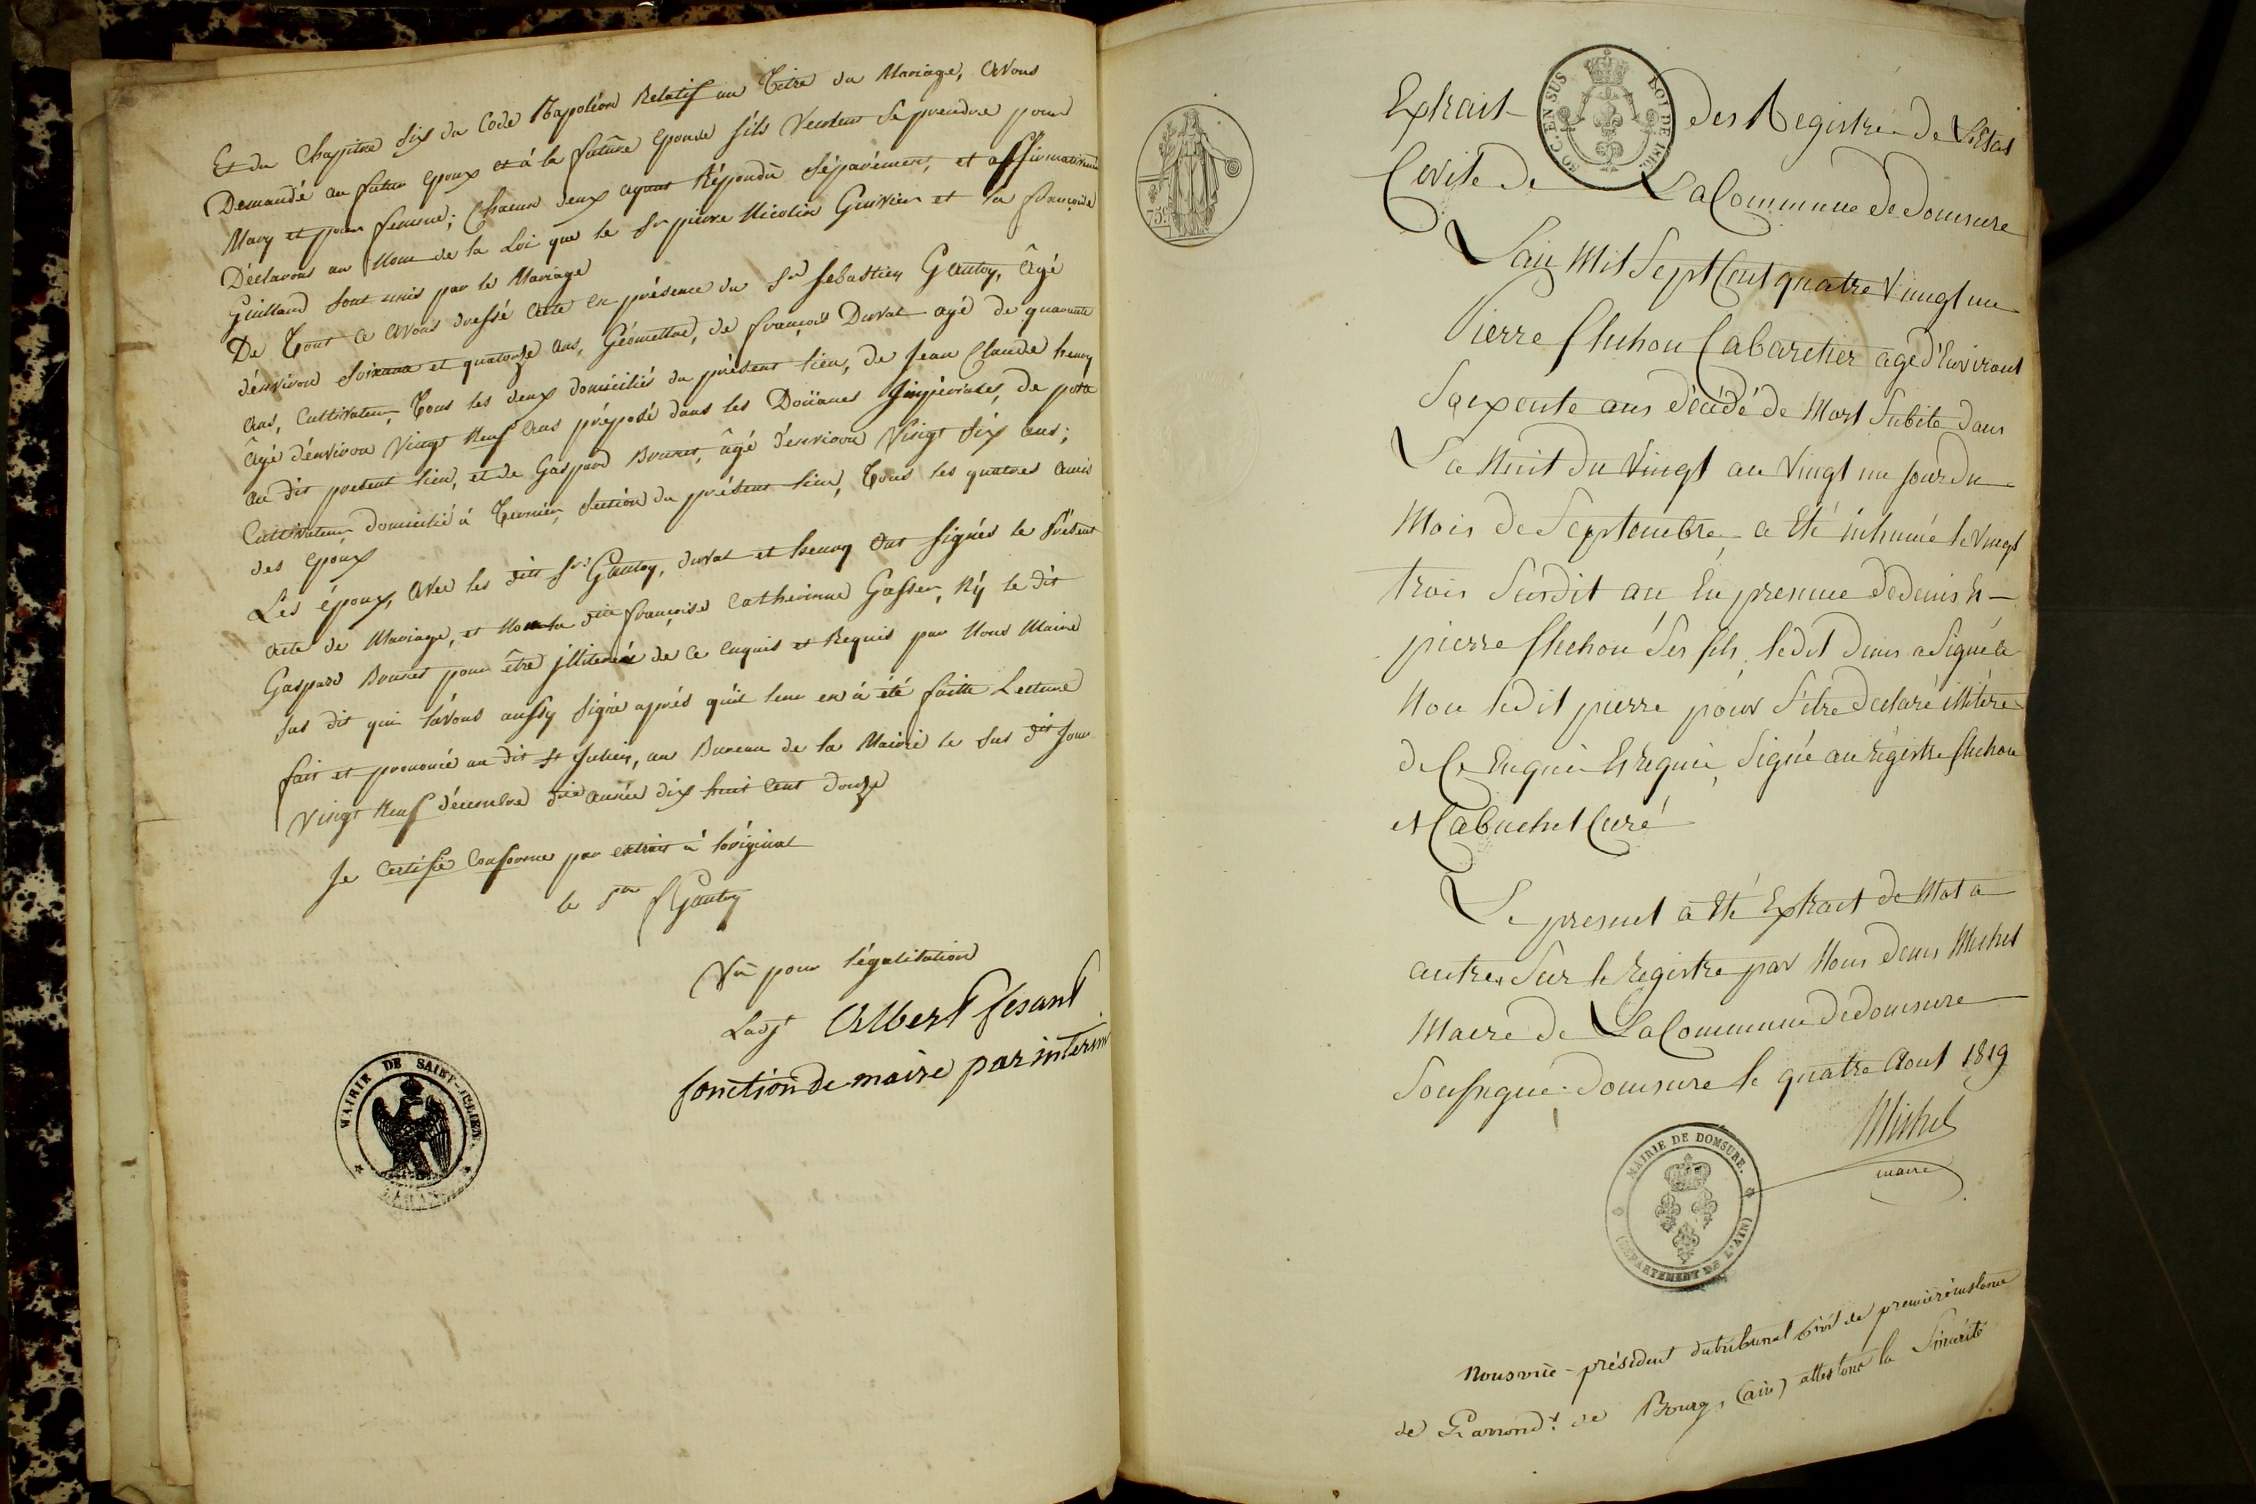 Et du Chapitre Six du Code Napoléon Relatif au Titre du Mariage, avons
Demandé au futur epoux et à la future epouse s'ils Veulent Se prendre pour
Mary et pour femme; Chacun deux ayant Répondû Séparément, et affirmativement
Déclarons au Nom de la Loi que le Sr pierre Nicolin Guivier et la françoise
Guilland Sont unis par le Mariage
De Tout ce avons dressé acte en présence du Sr Sebastien Gautoy, âgé
d'environ Soixante et quatorze ans, Géomettre, de françois Duval agé de quarante
ans, Cultivateur, Tous les deux domiciliés du présent lieu, de Jean Claude henry
âgé d'environ Vingt Neuf ans préposé dans les Doüanes Impériales, de poste
au dit present lieu, et de Gaspard Bonnet, âgé d'environ Vingt Six ans;
Cultivateur domicilié à Ternier, Section du présent lieu, Tous les quatres amis
des époux
Les époux, avec les dits Srs Gautoy, duval et henry ont signés le Présent
acte de Mariage, et Non la dite françoise Catherinne Gasser, Ny le dit
Gaspard Bonnet pour être illiterés de ce enquis et Requis par Nous Maire
Sus dit qui l'avons aussy Signé après qu'il leur en à été faitte Lecture
fait et prononcé au dit St Julien, au Bureau de la Mairie le Sus dit Jour
Vingt Neuf décembre dite année dix huit cent douze
Je Certifie Conforme par extrait à l'original
le Sre Gautoy
Vû pour légalitation
Ladjt Albert fesant
fonction de maire par interim
MAIRIE DE SAINT-JULIEN.
LEMAN
75c
SO C. EN SUS
LOI DE 1816.
Extrait des Registre de L'Etat
Civile de La Commune de Domsure
L'an Mil Sept Cent quatre Vingt un
Pierre Chichou Cabaretier agé d'Environt
Soixente ans décédé de Mort Subite dans
La Nuit du Vingt au Vingt un jour du
Mois de Septembre a Eté inhumé le Vingt
trois Susdit an En presence de denis &
pierre Chichou Ses fils, ledit denis a Signé &
Non ledit pierre pour S'être declaré illitéré
de Ce Enquis & Requis, Signé au régistre Chichou
& Cabuchet Curé
Le present a Eté Extrait de Mot a
autres Sur le registre par Nous denis Michel
Maire de La Commune de domsure
Soussigné. Domsure le quatre Aout 1819
Michel
maire
MAIRIE DE DOMSURE.
(DÉPARTEMENT DE L'AIN)
Nous vice-président du tribunal civil de première instance
de L'arrondt. de Bourg, (ain) attestons la Sincérité